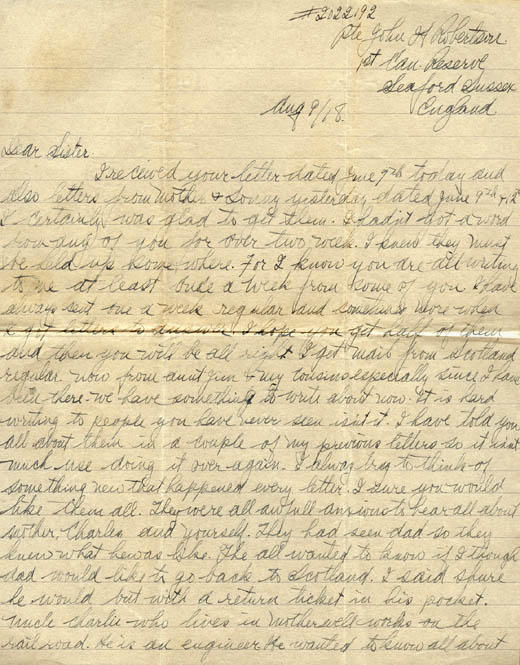 #2022192
Pte John H Robertson
1st Can. Reserve
Seaford Sussex
England
Aug 9/18.
Dear Sister
I recieved your letter dated June 9th today and
also letters from Mother & Sonny yesterday dated June 9th &
I certainly was glad to get them. I hadn't got a word
from any of you for over two week. I knew they must
be held up some where. For I know you are all writing
to me at least once a week from some of you I have
always sent one a week regular and sometimes more when
I got letters to answer. I hope you get half of them
and then you will be all right I get mail from Scotland
regular. now from aunt Jim & my cousins especially since I have
been there. we have something to write about now. It is hard
writing to people you have never seen isn't it. I have told you
all about them in a couple of my previous letters so it isn't
much use doing it over again. I alway try to thinks of
something new that happened every letter. I sure you would
like them all. They were all awfull anxious to hear all about
mother, Charles and yourself. They had seen dad so they
knew what he was like. The all wanted to know if I though
dad would like to go back to Scotland. I said shure
he would but with a return ticket in his pocket.
uncle Charlie who lives in Motherwell works on the
railroad. He is an engineer He wanted to know all about